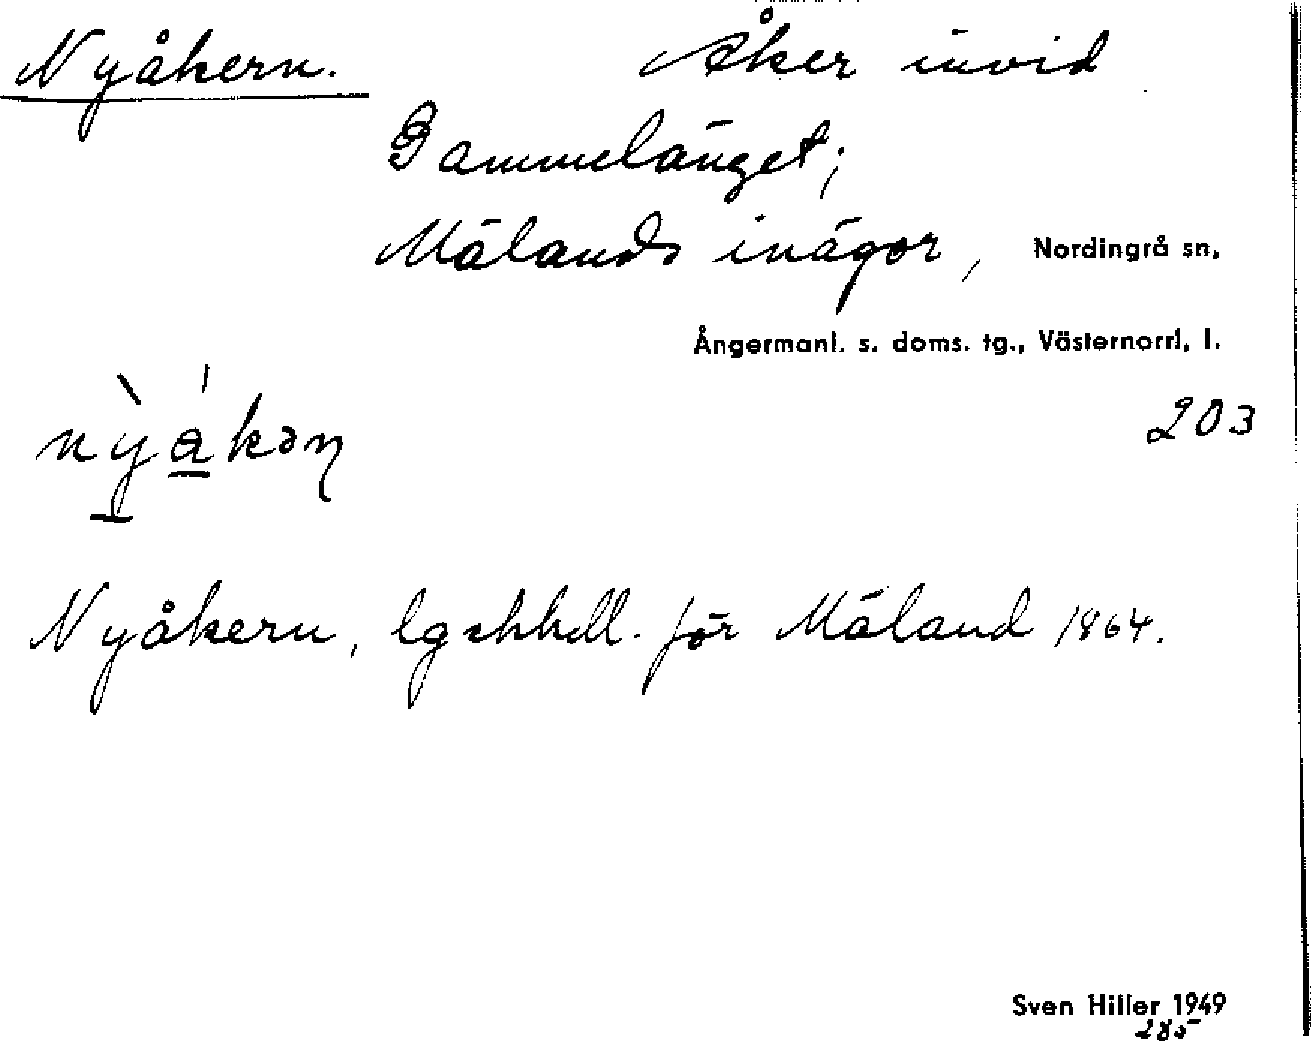 Nyåkern. Åker invid
Gammelänget;
Mälands inägor, Nordingrå sn,
Ångermanl. s. doms. tg., Västernorrl, l.
203
nỳákən
Nyåkern, lgskhdl. för Mäland 1864.
Sven Hiller 1949
285